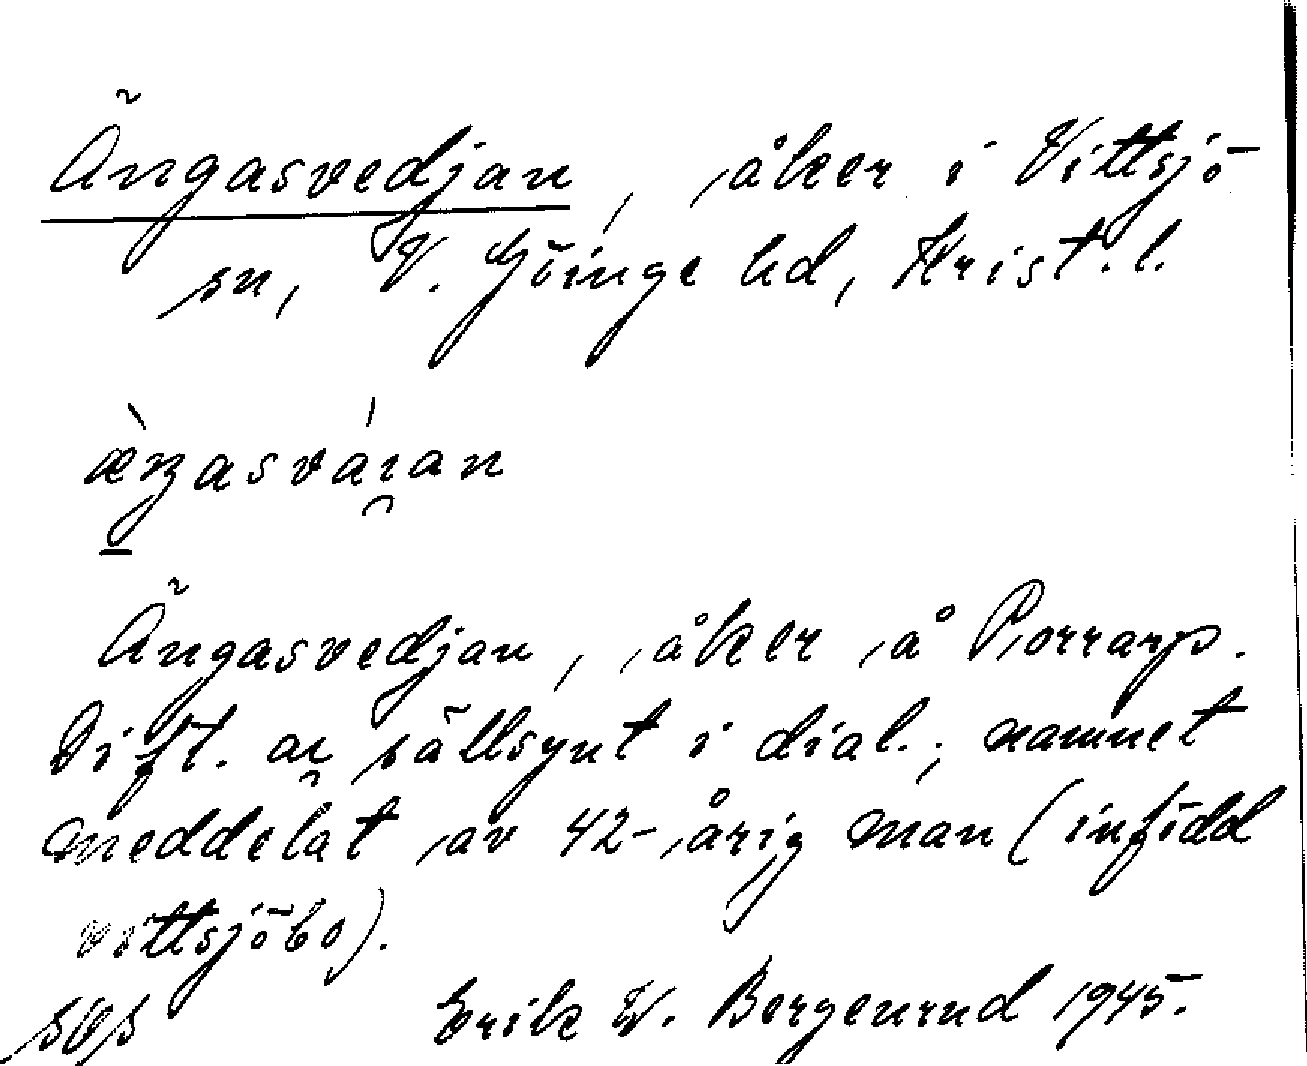 Ängasvedjan, åker i Vittsjö
sn, V. Göinge hd, Krist. l.
Ängasvedjan, åker å Porrarp.
Dift. sällsynt i dial.; namnet
meddelat av 42-årig man (infödd
vittsjöbo).
Erik W. Bergenrud 1945.